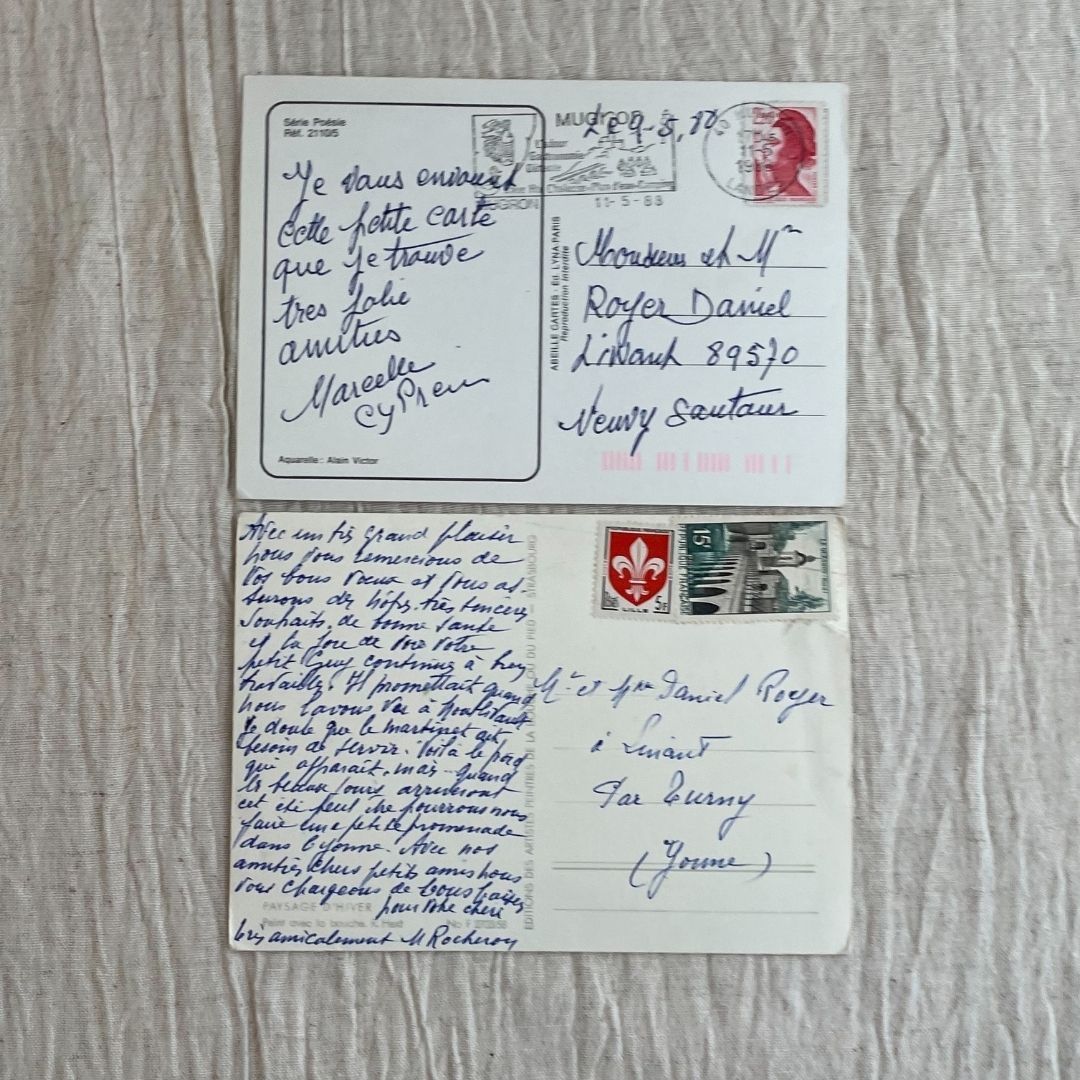 Série Poésie
Réf. 2110/5
Je vous envoient
cette petite carte
que je trouve
tres jolie
amities
Marcelle
Cypren
Aquarelle : Alain Victor
ABEILLE CARTES - Éd. LYNA-PARIS
Reproduction Interdite
MUGRON
Le 9-5.88
MUGRON
11-5-88
Monsieur et Mm
Royer Daniel
Linant 89570
Neuvy Sautour
Avec un très grand plaisir
nous vous remercions de
vos bons vœux et vous as
surons des nôtres très sincères
souhaits, de bonne santé
et la joie de voir votre
petit Guy continuer à bien
travailler. Il promettait quand
nous l'avons vu à
Je doute que le martinet ait
besoin de servir. Voilà le froid
qui apparait, mais quand
les beaux jours arriveront
cet été peut être pourrons nous
faire une petite promenade
dans l'Yonne. Avec nos
amitiés chers petits amis nous
vous chargeons de bons baisers
pour votre chéri
Très amicalement M Rocheron
PAYSAGE D'HIVER
Peint avec la bouche, K. Held
EDITIONS DES ARTISTES PEINTRES DE LA BOUCHE OU DU PIED - STRASBOURG
REPUBLIQUE FRANÇAISE
LILLE
5F
15F
REPUBLIQUE FRANÇAISE
Mr et Mme Daniel Royer
à Linant
Par Turny
(Yonne)